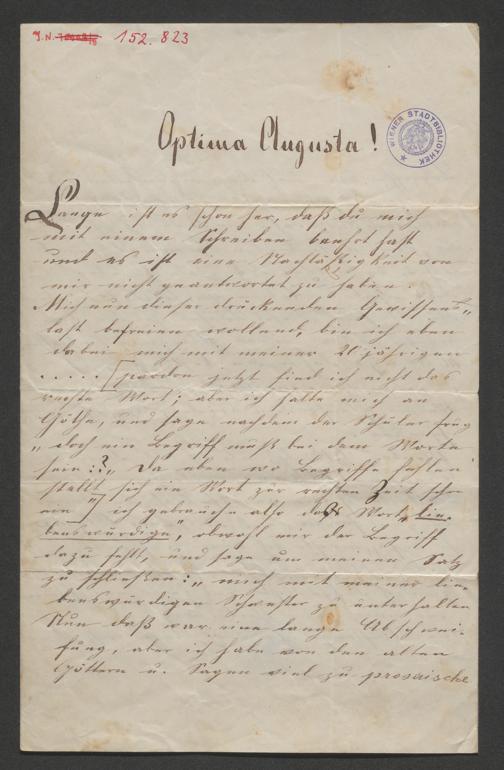 J.N. 152.823
Optima Augusta!
WIENER STADTBIBLIOTHEK
Lange ist es schon her, daß du mich
mit einem Schreiben beehrt hast
und es ist eine Nachläßigkeit von
mir nicht geantwortet zu haben.
Mich nun dieser drückenden Gewissens„
last befreien wollend, bin ich eben
dabei mich mit meiner 20 jährigen
..... [pardon jetzt find ich nicht das
rechte Wort; aber ich halte mich an
Göthe, und sage nachdem der Schüler frug
„doch ein Begriff muß bei dem Worte
sein:?„ Da eben wo Begriffe fehlen
stellt sich ein Wort zur rechten Zeit
ein„] ich gebrauche also das Wort „lie„
benswürdige", obwohl mir der Begriff
dazu fehlt, und sage um meinen Satz
zu schließen: „mich mit meiner lie„
benswürdigen Schwester zu unterhalten
Nun daß war eine lange Abschwei„
fung, aber ich habe von den alten
Göttern u. Sagen viel zu prosaische